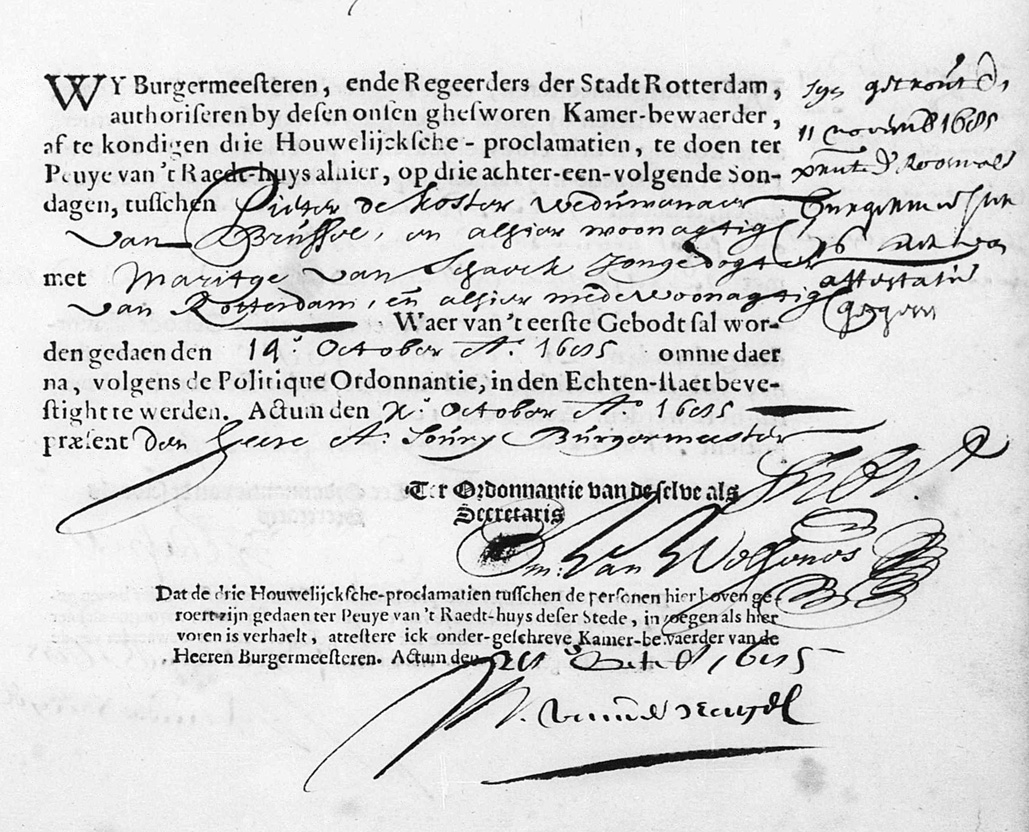 WY Burgermeesteren, ende Regeerders der Stadt Rotterdam,
authoriseren by desen onsen ghesworen Kamer-bewaerder,
af te kondigen drie Houwelijcksche-proclamatien, te doen ter
Peuye van 't Raedt-huys alhier, op drie achter-een-volgende Son-
dagen, tusschen Pieter de Koster Weduwenaer
van Brussel, en alhier woonagtig
met Maritge van Schaeck Jongedogter
van Rotterdam, en alhier mede woonagtig
Waer van 't eerste Gebodt sal wor-
den gedaen den 14 October Ao. 1685 omme daer
na, volgens de Politique Ordonnantie, in den Echten-staet beve-
stight te werden. Actum den October Ao. 1685
præsent den Heere A: Soury Burgermeester
Ter Ordonnantie van de selve als
Secretaris
Van
Dat de drie Houwelijcksche-proclamatien tusschen de personen hier boven ge-
roert zijn gedaen ter Peuye van 't Raedt-huys deser Stede, in zoegen als hier
voren is verhaelt, attestere ick onder-geschreve Kamer-bewaerder van de
Heeren Burgermeesteren. Actum den 1685
Syn getrout den
11 novemb 1685
attestatie
gegeven